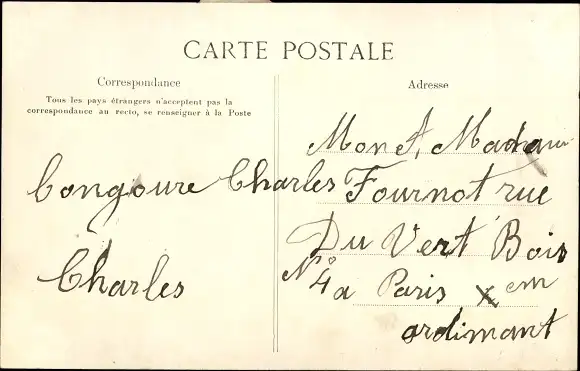 CARTE POSTALE
Correspondance
Tous les pays étrangers n'acceptent pas la
correspondance au recto, se renseigner à la Poste
Bongoure Charles
Charles
Adresse
Mon A, Madame
Fournot rue
Du Vert Bois
N° 4 a Paris X em
ardimant